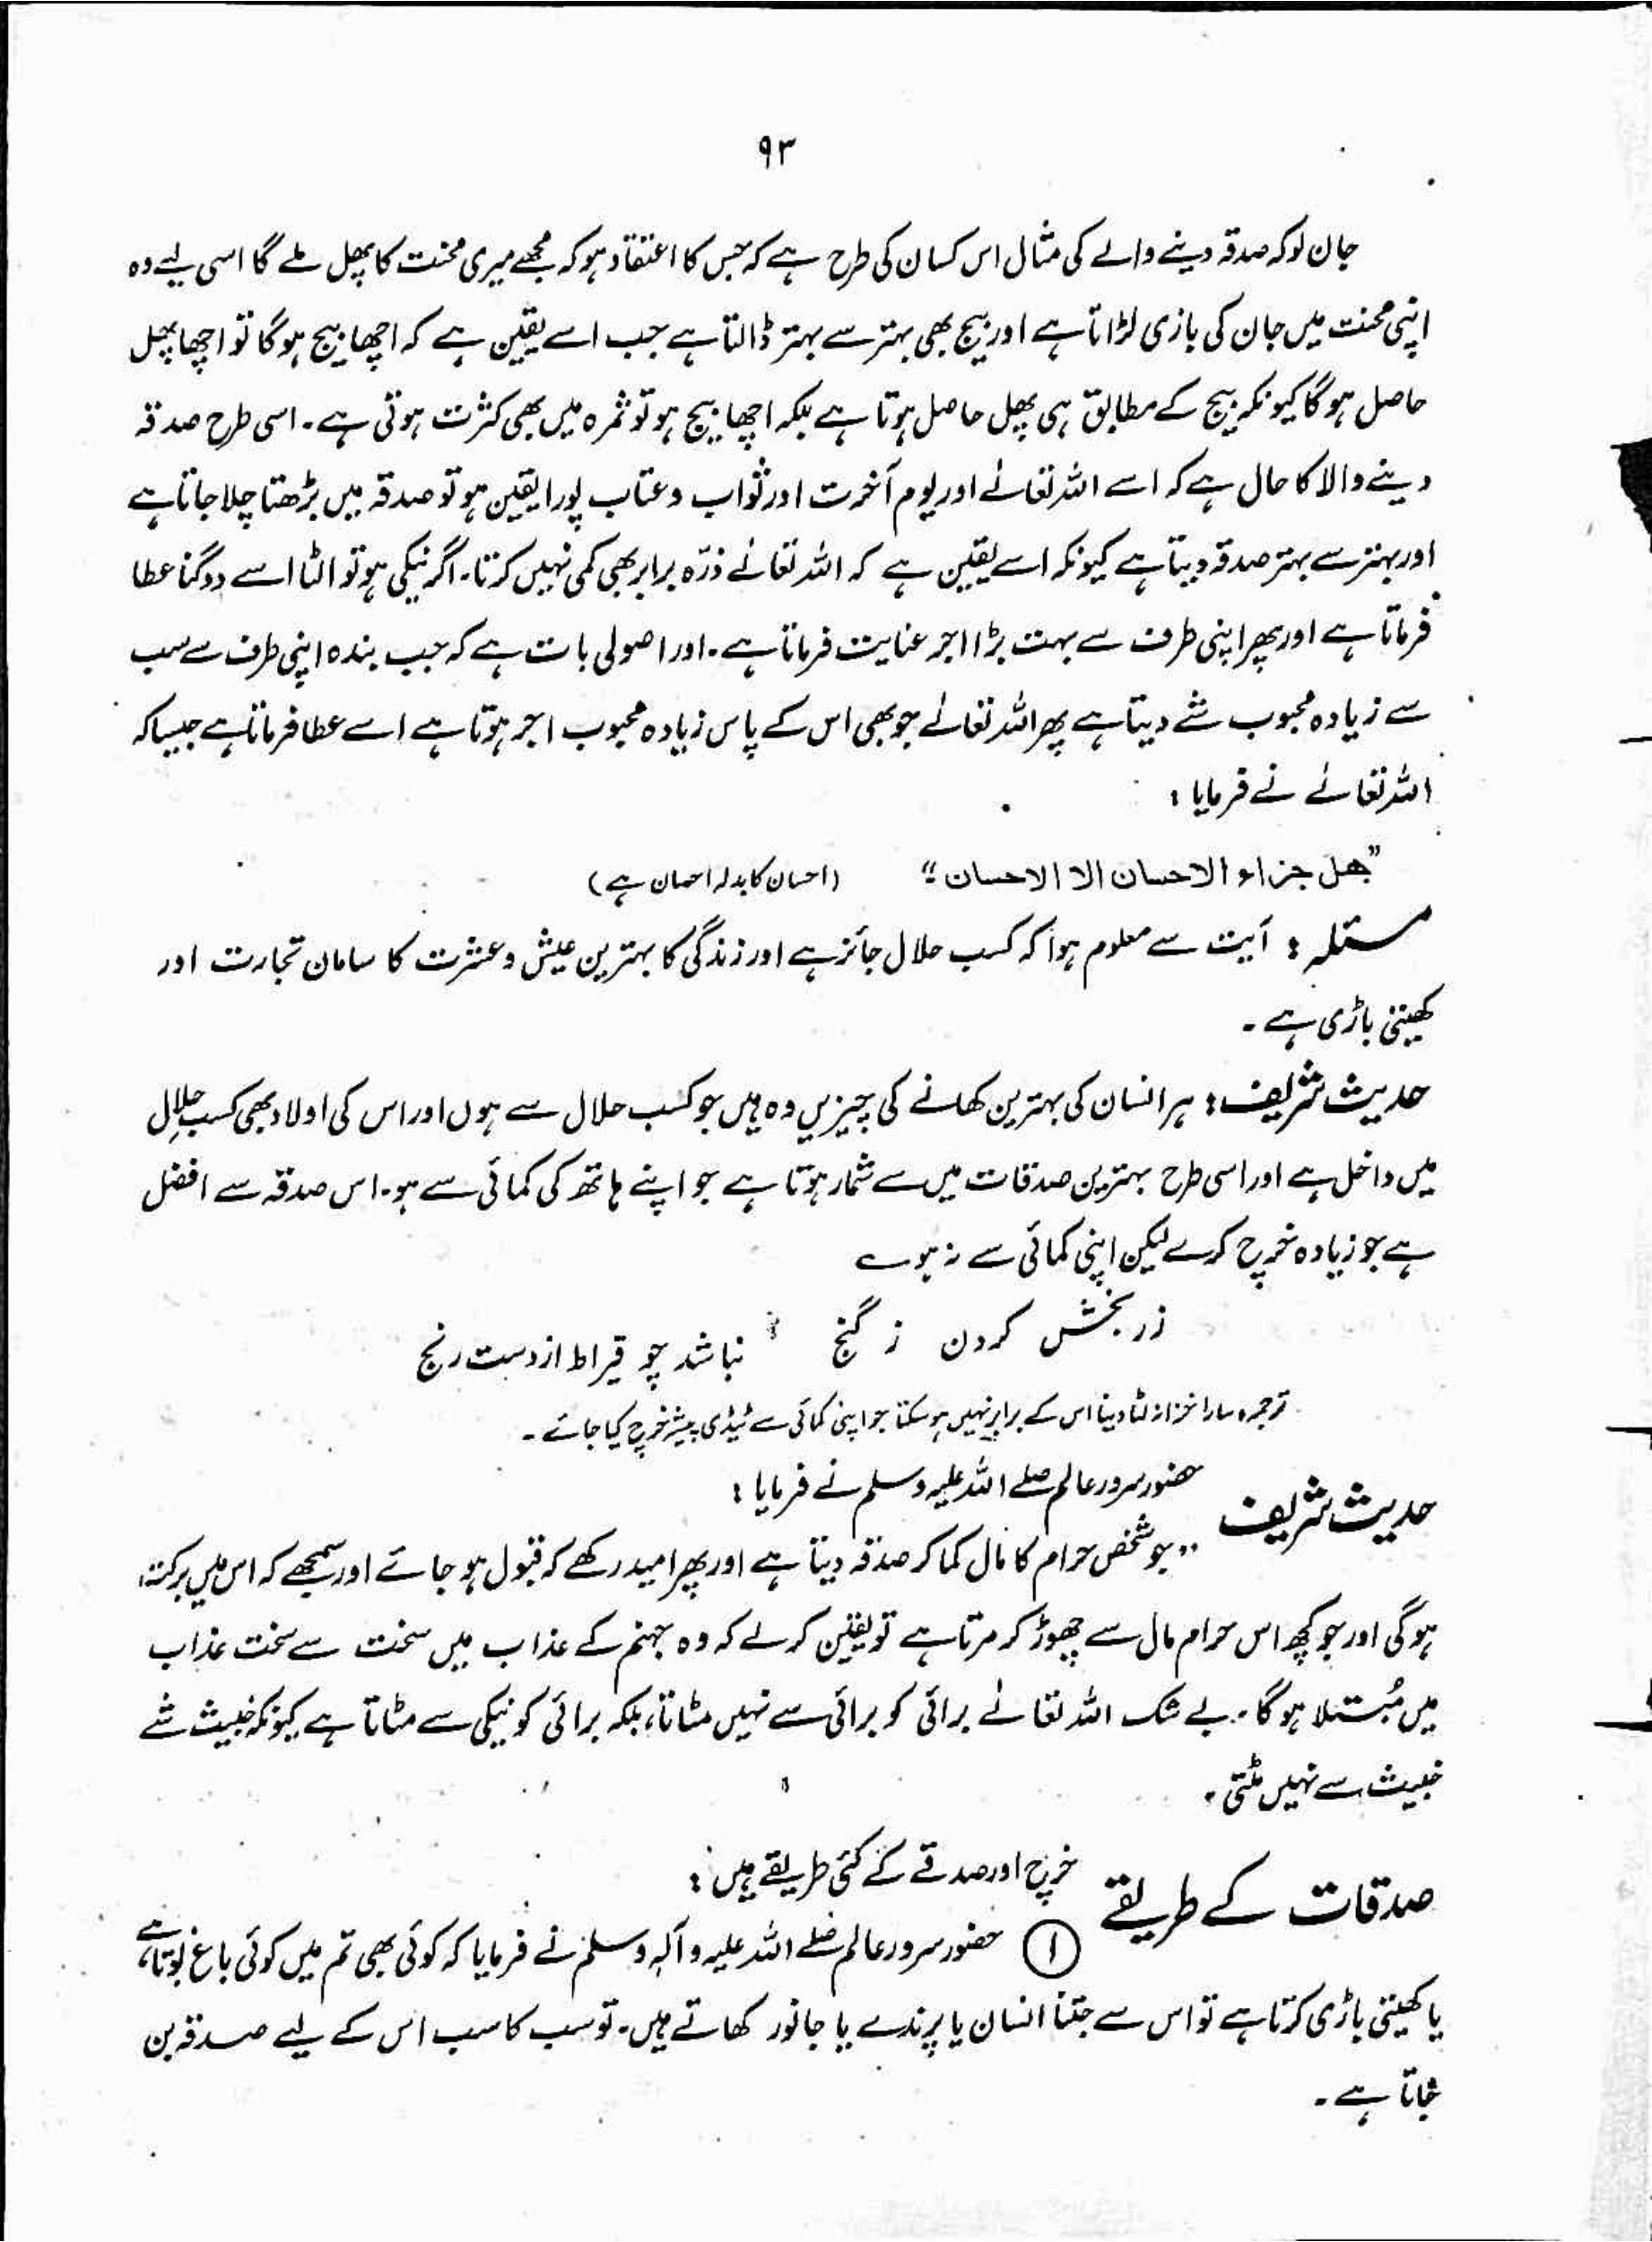 ۹۳
جان لو کہ صدقہ دینے والے کی مثال اس کسان کی طرح ہے کہ جس کا اعتقاد ہو کہ مجھے میری محنت کا پھل ملے گا اسی لیے وہ
اپنی محنت میں جان کی بازی لڑاتا ہے اور بیج بھی بہتر سے بہتر ڈالتا ہے جب اسے یقین ہے کہ اچھا بیج ہوگا تو اچھا پھل
حاصل ہوگا کیونکہ بیج کے مطابق ہی پھل حاصل ہوتا ہے بلکہ اچھا بیج ہو تو ثمرہ میں بھی کثرت ہوتی ہے۔ اسی طرح صدقہ
دینے والا کا حال ہے کہ اسے اللہ تعالےٰ اور یوم آخرت اور ثواب و عتاب پورا یقین ہو تو صدقہ میں بڑھتا چلا جاتا ہے
اور بہتر سے بہتر صدقہ دیتا ہے کیونکہ اسے یقین ہے کہ اللہ تعالےٰ ذرّہ برابر بھی کمی نہیں کرتا۔ اگر نیکی ہو تو الٹا اسے دوگنا عطا
فرماتا ہے اور پھر اپنی طرف سے بہت بڑا اجر عنایت فرماتا ہے۔ اور اصولی بات ہے کہ جب بندہ اپنی طرف سے سب
سے زیادہ محبوب شے دیتا ہے پھر اللہ تعالےٰ جو بھی اس کے پاس زیادہ محبوب اجر ہوتا ہے اسے عطا فرماتا ہے جیسا کہ
اللہ تعالےٰ نے فرمایا :
”ھل جزاء الاحسان الا الاحسان“ (احسان کا بدلہ احسان ہے)
مسئلہ : آیت سے معلوم ہوا کہ کسب حلال جائز ہے اور زندگی کا بہترین عیش و عشرت کا سامان تجارت اور
کھیتی باڑی ہے ۔
حدیث شریف : ہر انسان کی بہترین کھانے کی چیزیں وہ ہیں جو کسب حلال سے ہوں اور اس کی اولاد بھی کسب حلال
میں داخل ہے اور اسی طرح بہترین صدقات میں سے شمار ہوتا ہے جو اپنے ہاتھ کی کمائی سے ہو۔ اس صدقہ سے افضل
ہے جو زیادہ خرچ کرے لیکن اپنی کمائی سے نہ ہو ؎
زر بخش کردن ز گنج نباشد چو قیراط از دست رنج
ترجمہ سارا خزانہ لٹا دینا اس کے برابر نہیں ہو سکتا جو اپنی کمائی سے ٹیڈی پیسہ خرچ کیا جائے ۔
حدیث شریف حضور سرور عالم صلے اللہ علیہ وسلم نے فرمایا :
”جو شخص حرام کا مال کما کر صدقہ دیتا ہے اور پھر امید رکھے کہ قبول ہو جائے اور سمجھے کہ اس میں برکت
ہوگی اور جو کچھ اس حرام مال سے چھوڑ کر مرتا ہے تو یقین کر لے کہ وہ جہنم کے عذاب میں سخت سے سخت عذاب
میں مُبتلا ہوگا۔ بے شک اللہ تعالےٰ برائی کو برائی سے نہیں مٹاتا، بلکہ برائی کو نیکی سے مٹاتا ہے کیونکہ خبیث شے
خبیث سے نہیں مٹتی۔
صدقات کے طریقے خرچ اور صدقے کے کئی طریقے ہیں :
① حضور سرور عالم صلے اللہ علیہ وآلہ وسلم نے فرمایا کہ کوئی بھی تم میں کوئی باغ بوتا ہے،
یا کھیتی باڑی کرتا ہے تو اس سے جتنا انسان یا پرندے یا جانور کھاتے ہیں۔ تو سب کا سب اس کے لیے صدقہ بن
جاتا ہے ۔